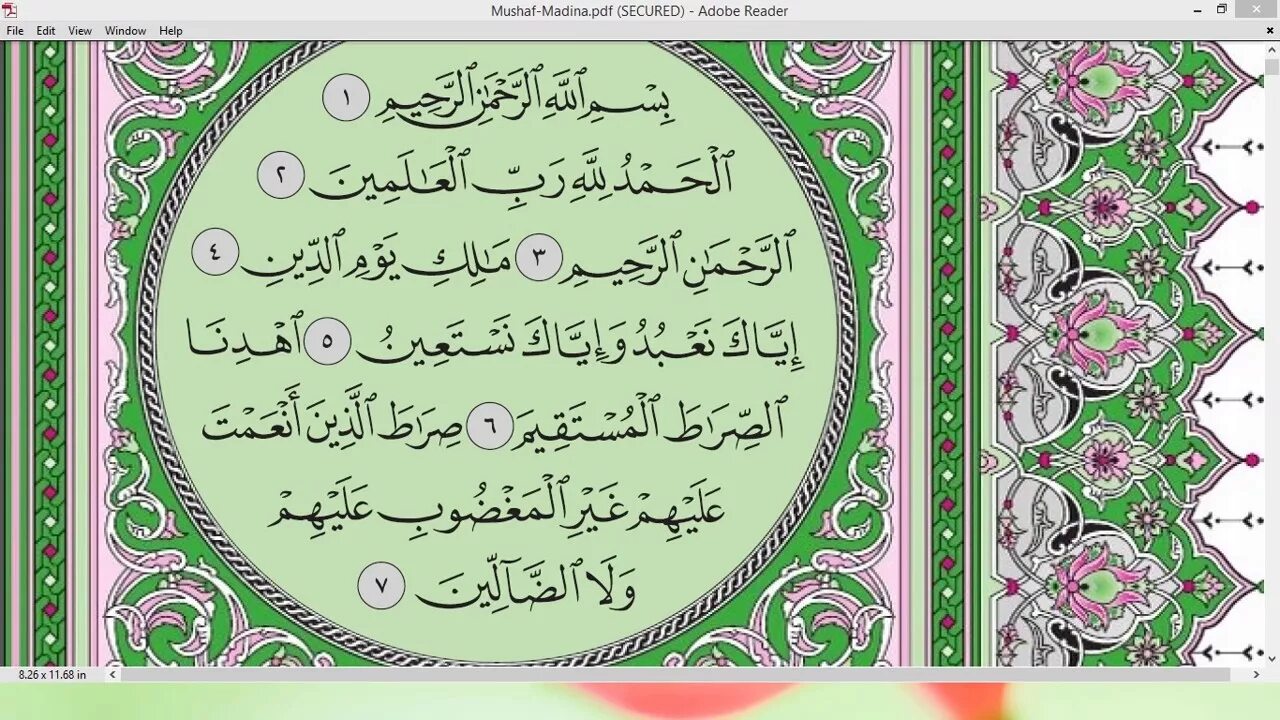 Mushaf-Madina.pdf (SECURED) - Adobe Reader
File Edit View Window Help
بِسْمِ ٱللَّهِ ٱلرَّحْمَٰنِ ٱلرَّحِيمِ ١
ٱلْحَمْدُ لِلَّهِ رَبِّ ٱلْعَٰلَمِينَ ٢
ٱلرَّحْمَٰنِ ٱلرَّحِيمِ ٣ مَٰلِكِ يَوْمِ ٱلدِّينِ ٤
إِيَّاكَ نَعْبُدُ وَإِيَّاكَ نَسْتَعِينُ ٥ ٱهْدِنَا
ٱلصِّرَٰطَ ٱلْمُسْتَقِيمَ ٦ صِرَٰطَ ٱلَّذِينَ أَنْعَمْتَ
عَلَيْهِمْ غَيْرِ ٱلْمَغْضُوبِ عَلَيْهِمْ
وَلَا ٱلضَّآلِّينَ ٧
8.26 x 11.68 in